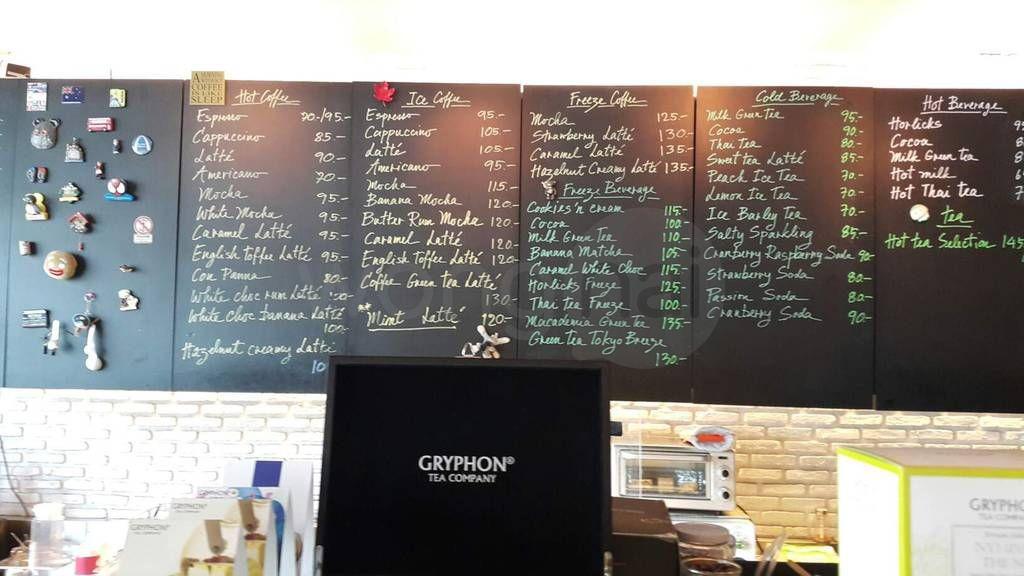 COFFEE
IS LIKE
SLEEP
Hot Coffee
Espresso 70-/95.-
Cappuccino 85.-
Latté 90.-
Americano 70.-
Mocha 95.-
White Mocha 95.-
Caramel Latté 95.-
English Toffee Latté 95.-
Con Panna 80
White choc rum Latté
White Choc Banana Latté
100.-
Hazelnut creamy Latté
Ice Coffee
Espresso 95.-
Cappuccino 105.-
Latté 105.-
Americano 95.-
Mocha 115.-
Banana Mocha 120.-
Butter Rum Mocha 120.-
Caramel Latté 120.-
English Toffee Latté 120.-
Coffee Green Tea Latté
130.-
Mint Latté 120.-
Freeze Coffee
Mocha 125.-
Strawberry Latté 130.-
Caramel Latté 135.-
Hazelnut Creamy Latté 135.-
Freeze Beverage
Cookies'n'cream 115.-
Cocoa 100.-
Milk Green Tea 110.-
Banana Matcha 105.-
Caramel White Choc 115.-
Horlicks Freeze 125.-
Thai Tea Freeze 100.-
Macadamia Green Tea 135.-
Green Tea Tokyo Breeze
130.-
Cold Beverage
Milk Green Tea 95.-
Cocoa 90.-
Thai Tea 80.-
Sweet tea Latté 85.-
Peach Ice Tea 70.-
Lemon Ice Tea 70.-
Ice Barley Tea 70.-
Salty Sparkling 85.-
Cranberry Raspberry Soda 90.-
Strawberry Soda 80.-
Passion Soda 80.-
Cranberry Soda 90.-
Hot Beverage
Horlicks
Cocoa
Milk Green tea
Hot milk
Hot Thai tea
tea
Hot tea Selection 145
GRYPHON®
TEA COMPANY
GRYPHON
TEA COMPANY